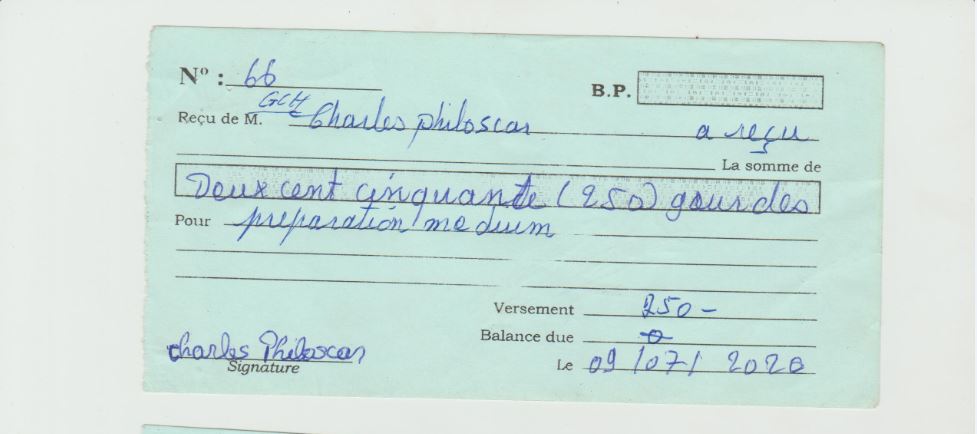 N° : 66
B.P.
GCH
Reçu de M. Charles philoscar a reçu
La somme de
Deux cent cinquante (250) gourdes
Pour preparation medium
Versement 250 -
Balance due 0
charles Philoscar
Signature
Le 09/07/2020